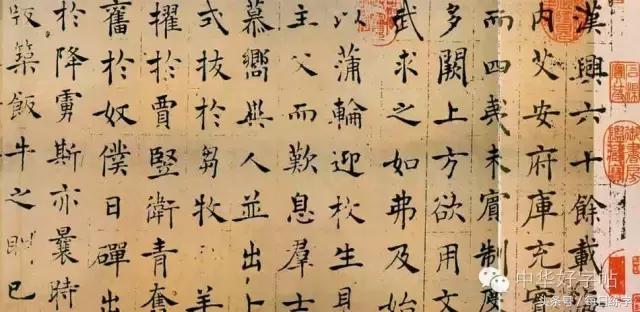 漢興六十餘載海
内艾安府庫充實
而四夷未賓制度
多闕上方欲用文
武求之如弗及始
以蒲輪迎枚生見
主父而歎息羣士
慕嚮異人並出卜
式拔於芻牧羊
擢於賈豎衛青奮
舊於奴僕日磾出
於降虜斯亦曩時
版築飯牛之已
中华好字帖
头条号 / 每日练字